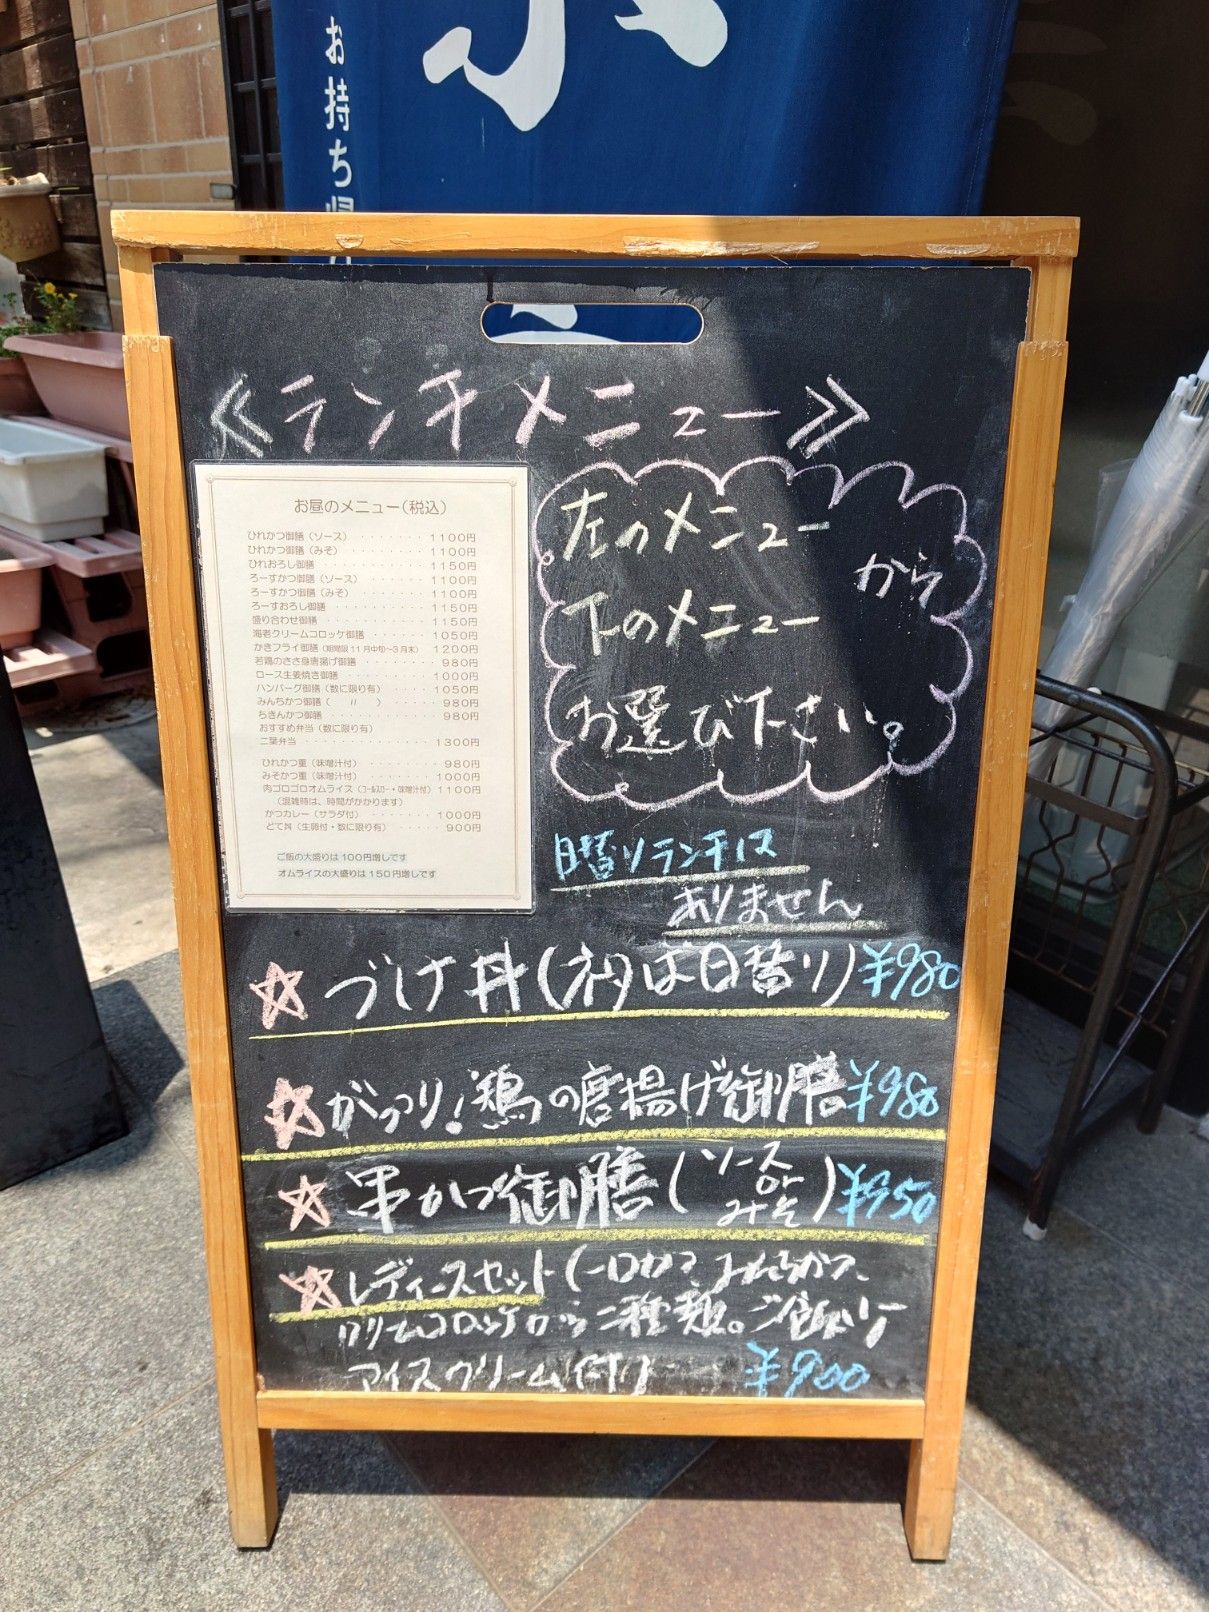 お持ち帰
≪ランチメニュー≫
お昼のメニュー(税込)
ひれかつ御膳(ソース)・・・・・・・・1100円
ひれかつ御膳(みそ)・・・・・・・・1100円
ひれおろし御膳・・・・・・・・・・1150円
ろーすかつ御膳(ソース)・・・・・・1100円
ろーすかつ御膳(みそ)・・・・・・・1100円
ろーすおろし御膳・・・・・・・・・1150円
盛り合わせ御膳・・・・・・・・・・1150円
海老クリームコロッケ御膳・・・・・・1050円
かきフライ御膳(期間限11月中旬~3月末)1200円
若鶏のささ身唐揚げ御膳・・・・・・980円
ロース生姜焼き御膳・・・・・・・1000円
ハンバーグ御膳(数に限り有)・・・・1050円
みんちかつ御膳(〃)・・・・980円
ちきんかつ御膳・・・・・・・・・980円
おすすめ弁当(数に限り有)
二葉弁当・・・・・・・・・・・1300円
ひれかつ重(味噌汁付)・・・・・・980円
みそかつ重(味噌汁付)・・・・・・1000円
肉ゴロゴロオムライス(コールスロー・味噌汁付)1100円
(混雑時は、時間がかかります)
かつカレー(サラダ付)・・・・・・1000円
どて丼(生卵付・数に限り有)・・・・900円
ご飯の大盛りは100円増しです
オムライスの大盛りは150円増しです
左のメニュー
から
下のメニュー
お選び下さい。
日替りランチは
ありません
☆づけ丼(ネタは日替り)¥980
☆がっつり!鶏の唐揚げ御膳¥980
☆串かつ御膳(ソースorみそ)¥950
☆レディースセット(一口かつ、みんちかつ、
クリームコロッケから二種類。ご飯
アイスクリーム付)¥900